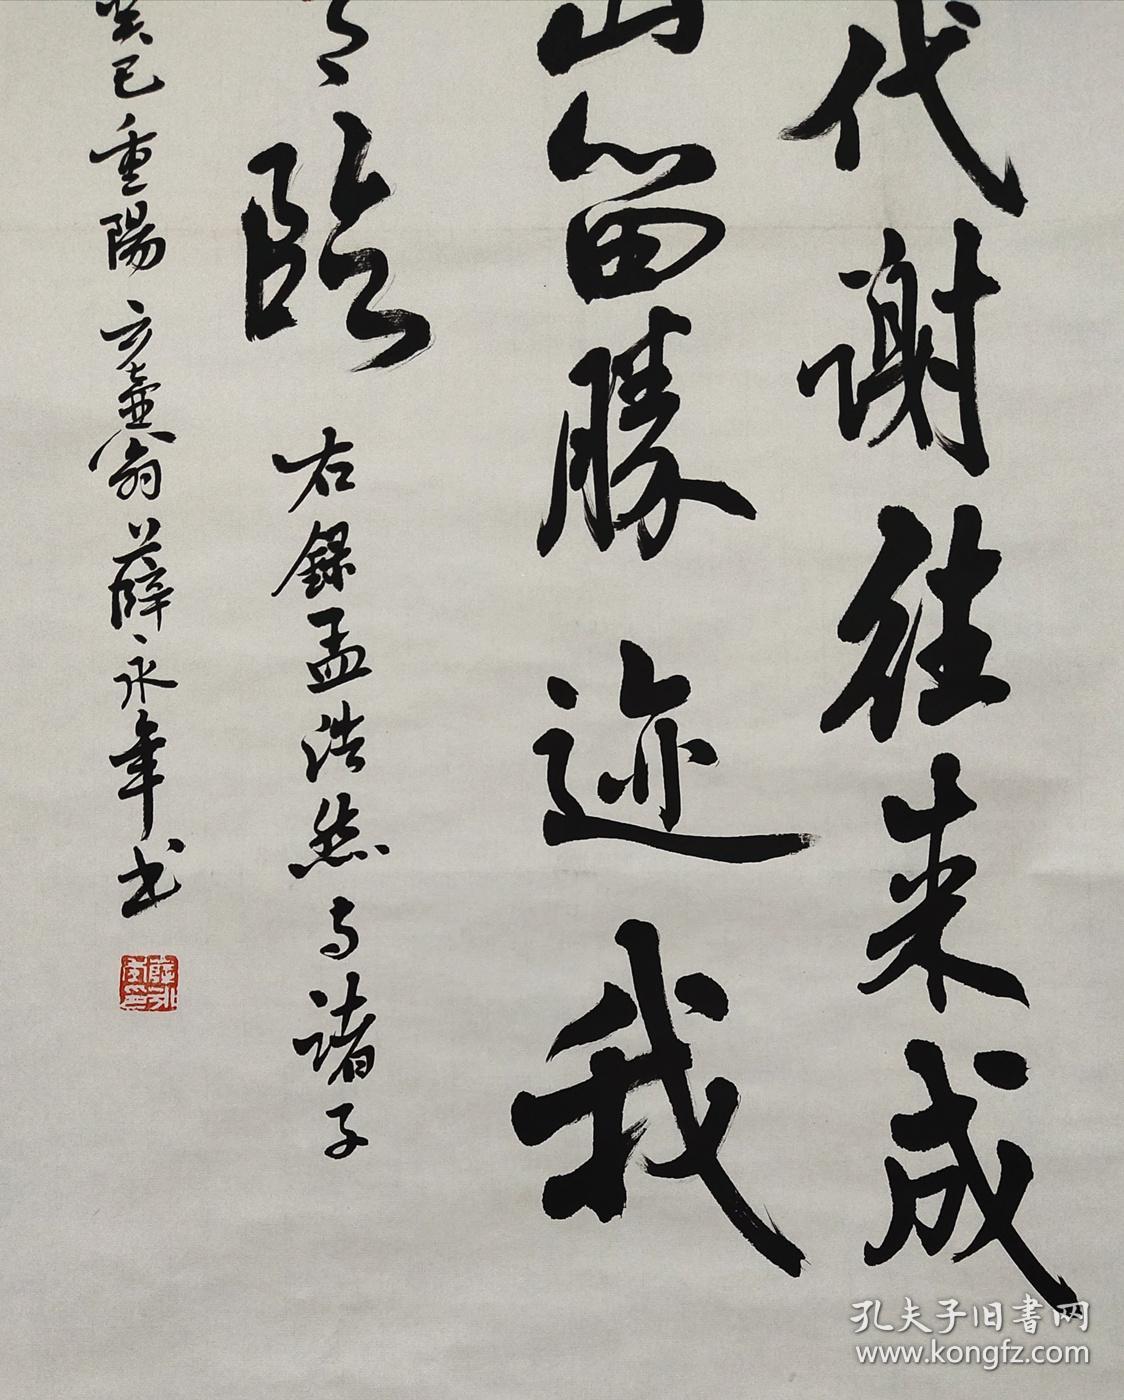 代謝往来成
山留勝迹我
臨 右録孟浩然与諸子
癸巳重陽方壶翁薛永年书
孔夫子旧書网
www.kongfz.com